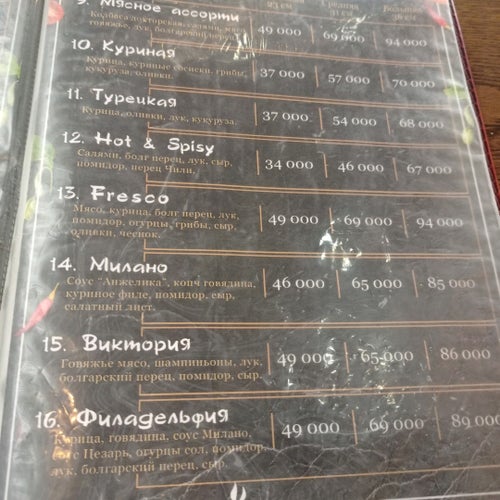 9. Мясное ассорти
23 см
средняя
31 см
Большая
36 см
Колбаса докторская, салями, мясо
говяжье, лук, болгарский перец
49 000 69 000 94 000
10. Куриная
Курица, куриные сосиски, грибы,
кукуруза, оливки.
37 000 57 000 70 000
11. Турецкая
Курица, оливки, лук, кукуруза.
37 000 54 000 68 000
12. Hot & Spisy
Салями, болг перец, лук, сыр,
помидор, перец Чили.
34 000 46 000 67 000
13. Fresco
Мясо, курица, болг перец, лук,
помидор, огурцы, грибы, сыр,
оливки, чеснок.
49 000 69 000 94 000
14. Милано
Соус "Анжелика", копч говядина,
куриное филе, помидор, сыр,
салатный лист.
46 000 65 000 85 000
15. Виктория
Говяжье мясо, шампиньоны, лук,
болгарский перец, помидор, сыр.
49 000 65 000 86 000
16. Филадельфия
Курица, говядина, соус Милано,
соус Цезарь, огурцы сол, помидор,
лук, болгарский перец, сыр.
49 000 69 000 89 000